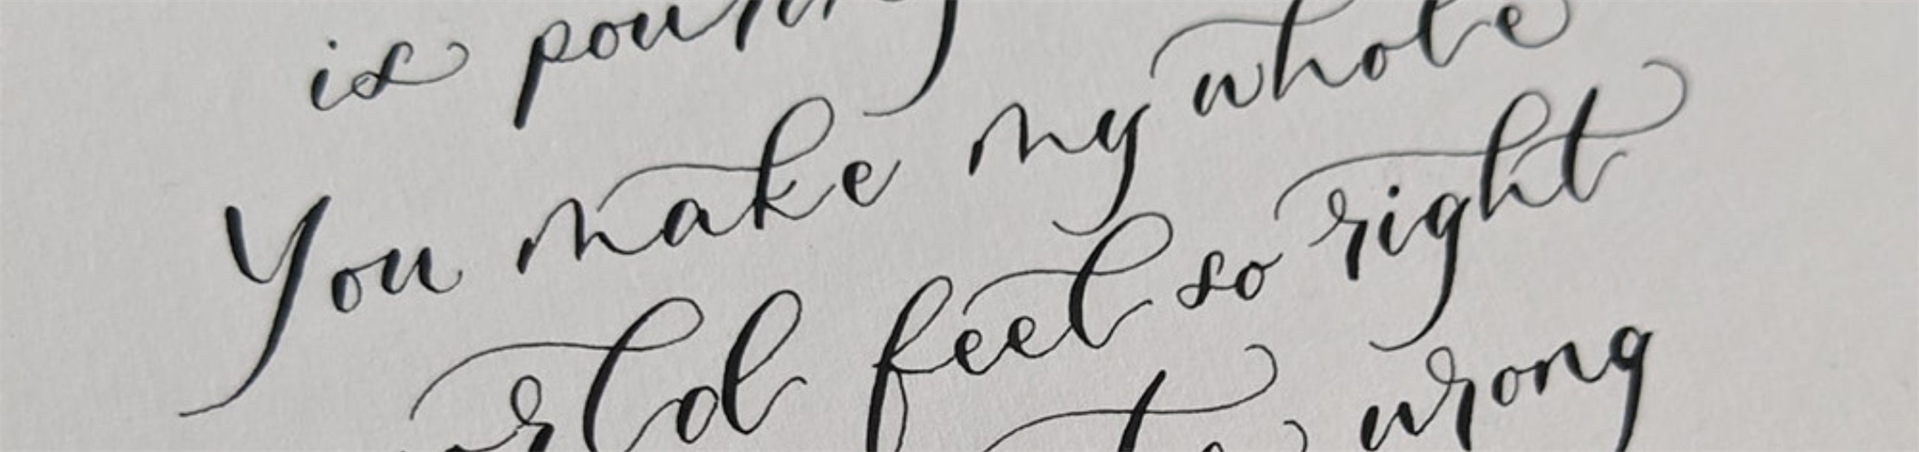 is pouring
You make my whole
world feel so right
to wrong